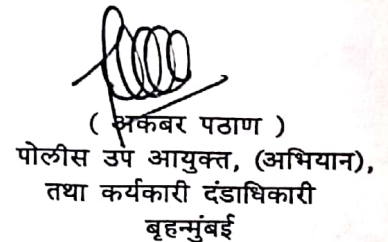 ( अकबर पठाण )
पोलीस उप आयुक्त, (अभियान),
तथा कर्यकारी दंडाधिकारी
बृहन्मुंबई